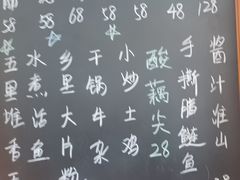 师 68 58 58 48 128
酱汁淮山
手撕腊鲢鱼
酸藕尖28
小炒土鸡
干锅牛杂
乡里大片粉
水煮活鱼
五里堆香干